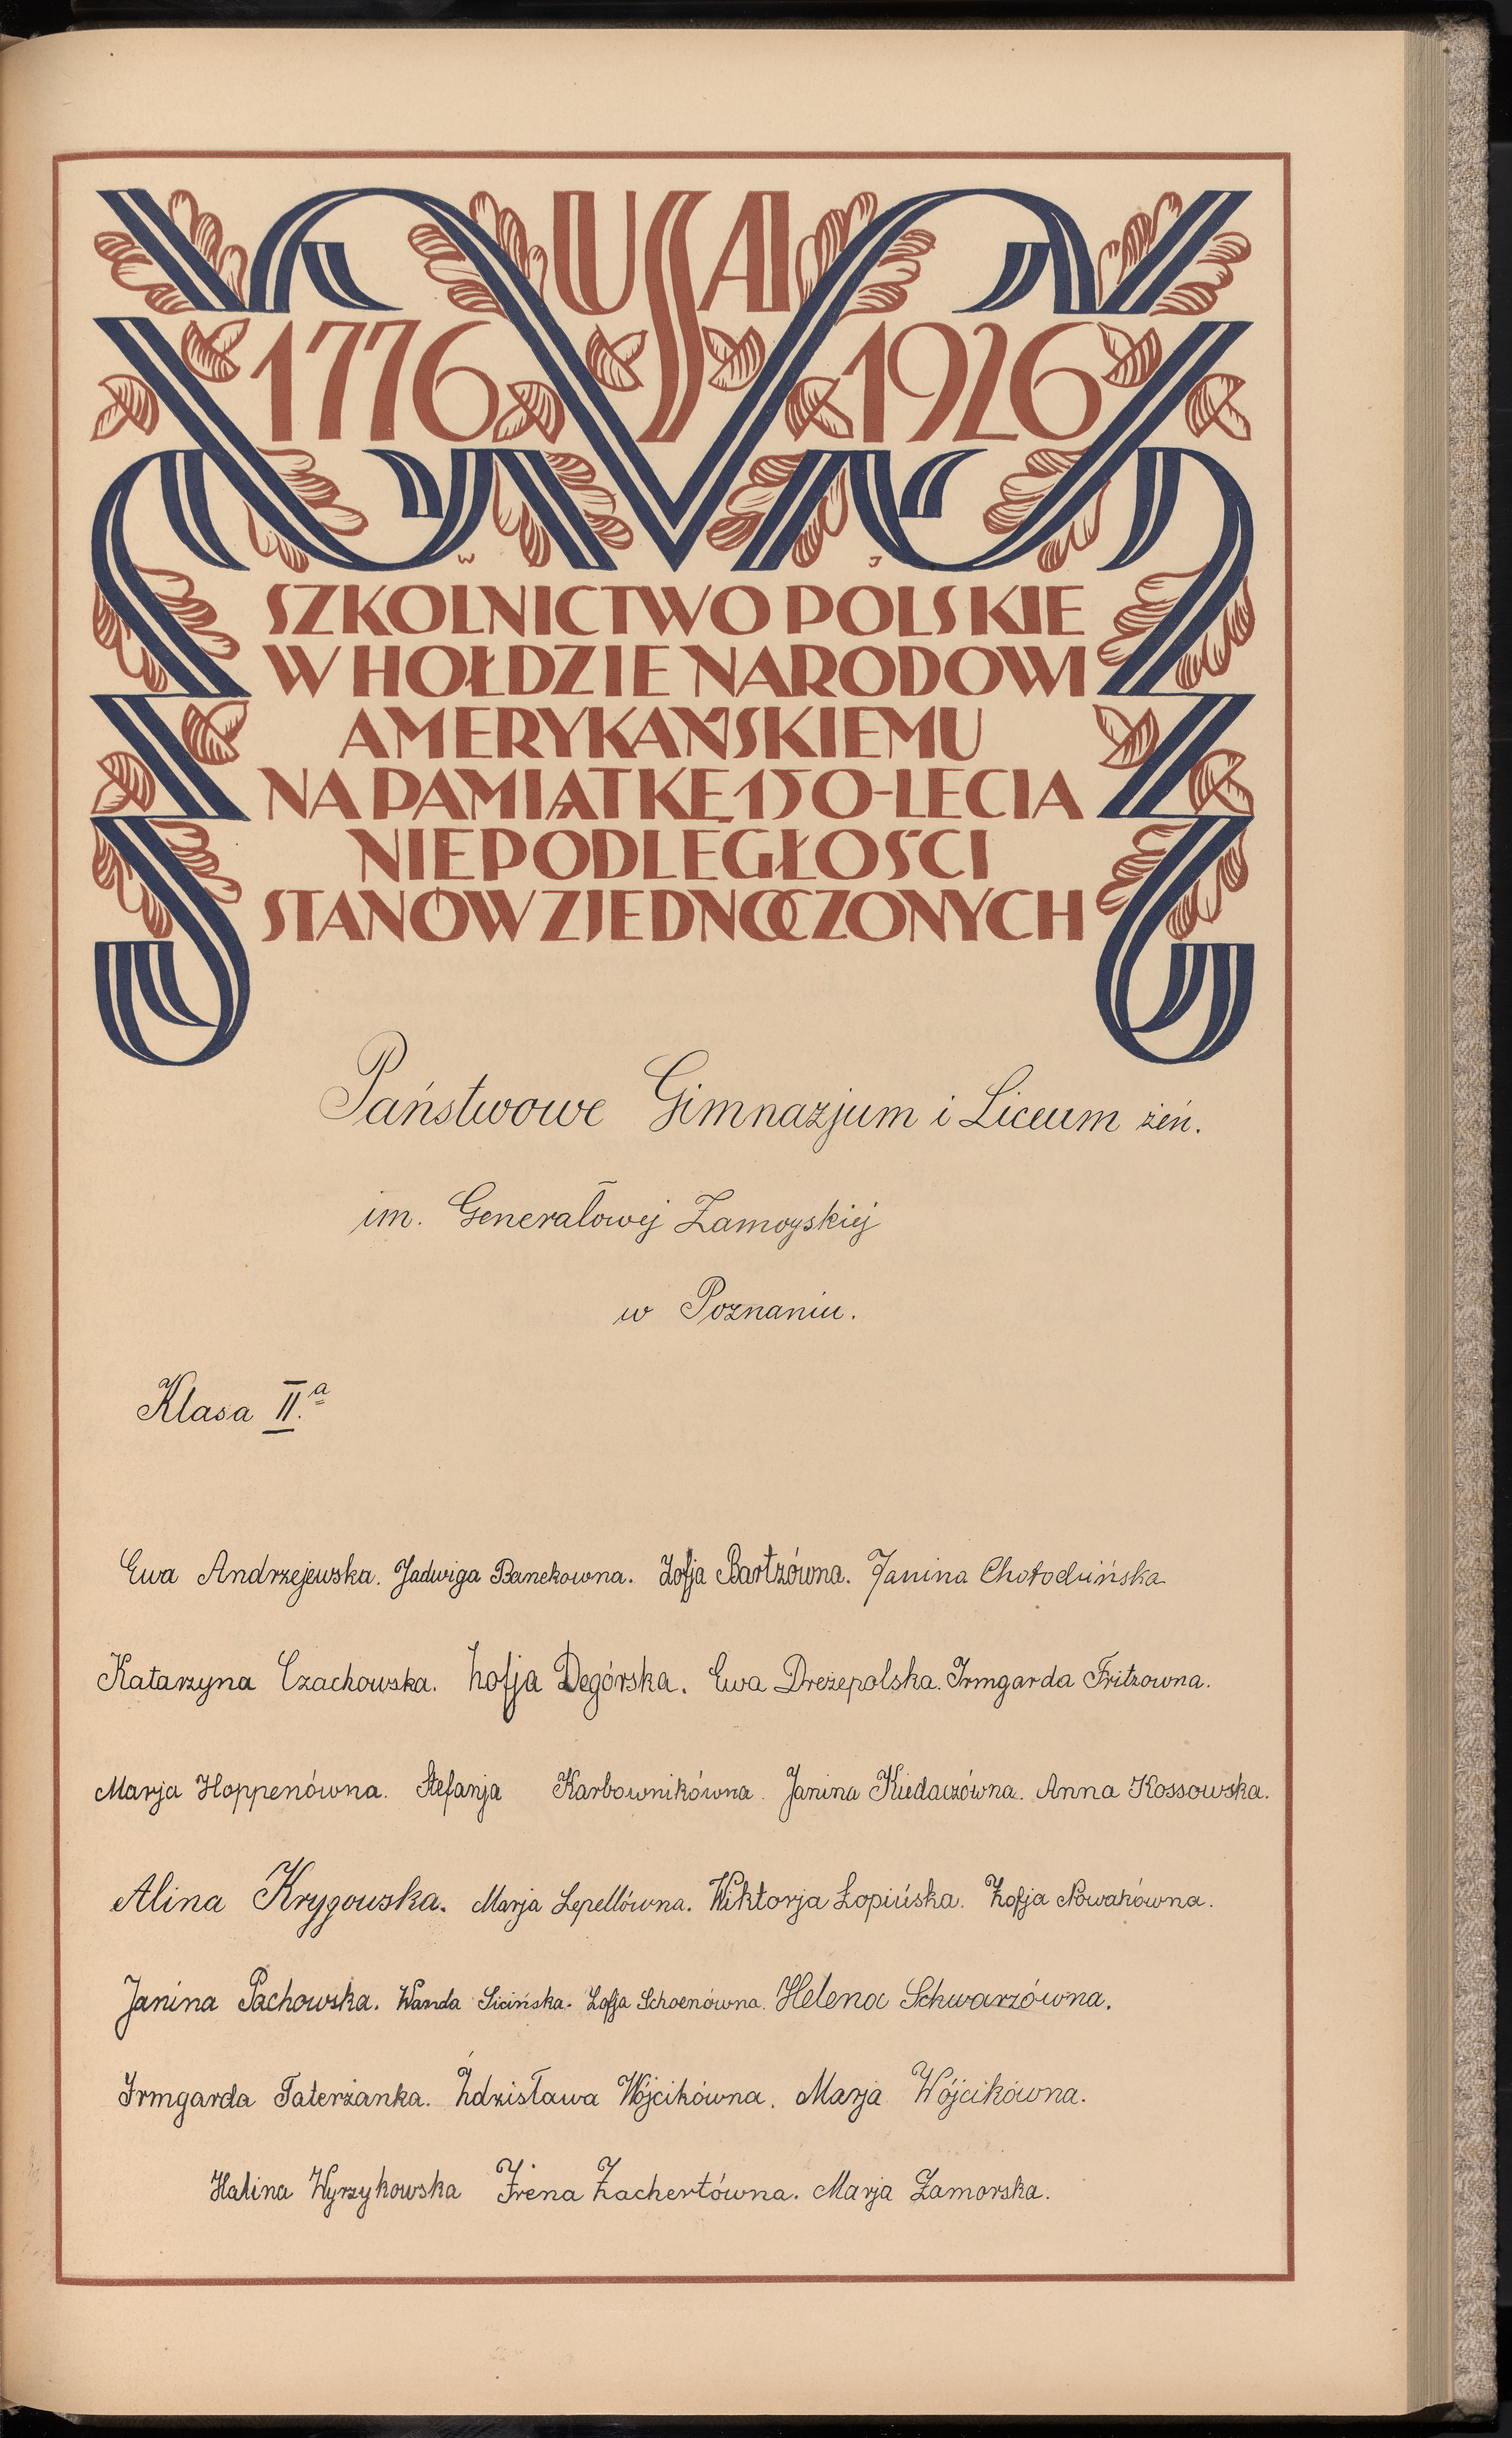 USA
1776 1926
W J
SZKOLNICTWO POLSKIE
W HOŁDZIE NARODOWI
AMERYKAŃSKIEMU
NA PAMIĄTKĘ 150-LECIA
NIEPODLEGŁOŚCI
STANÓW ZJEDNOCZONYCH
Państwowe Gimnazjum i Liceum żeń.
im. Generałowej Zamoyskiej
w Poznaniu.
Klasa II.a
Ewa Andrzejewska. Jadwiga Banekowna. Zofja Bartzówna. Janina Chołodzińska
Katarzyna Czachowska. Zofja Degórska. Ewa Dreżepolska. Irmgarda Fritzowna.
Marja Hoppenówna. Stefanja Karbownikówna. Janina Kiedaczówna. Anna Kossowska.
Alina Krygowska. Marja Lepellówna. Wiktorja Łopińska. Zofja Nowakówna.
Janina Pachowska. Wanda Sicińska. Zofja Schoenówna. Helena Schwarzówna.
Irmgarda Taterżanka. Zdzisława Wójcikówna. Marja Wójcikówna.
Halina Wyrzykowska Irena Zachertówna. Marja Zamorska.